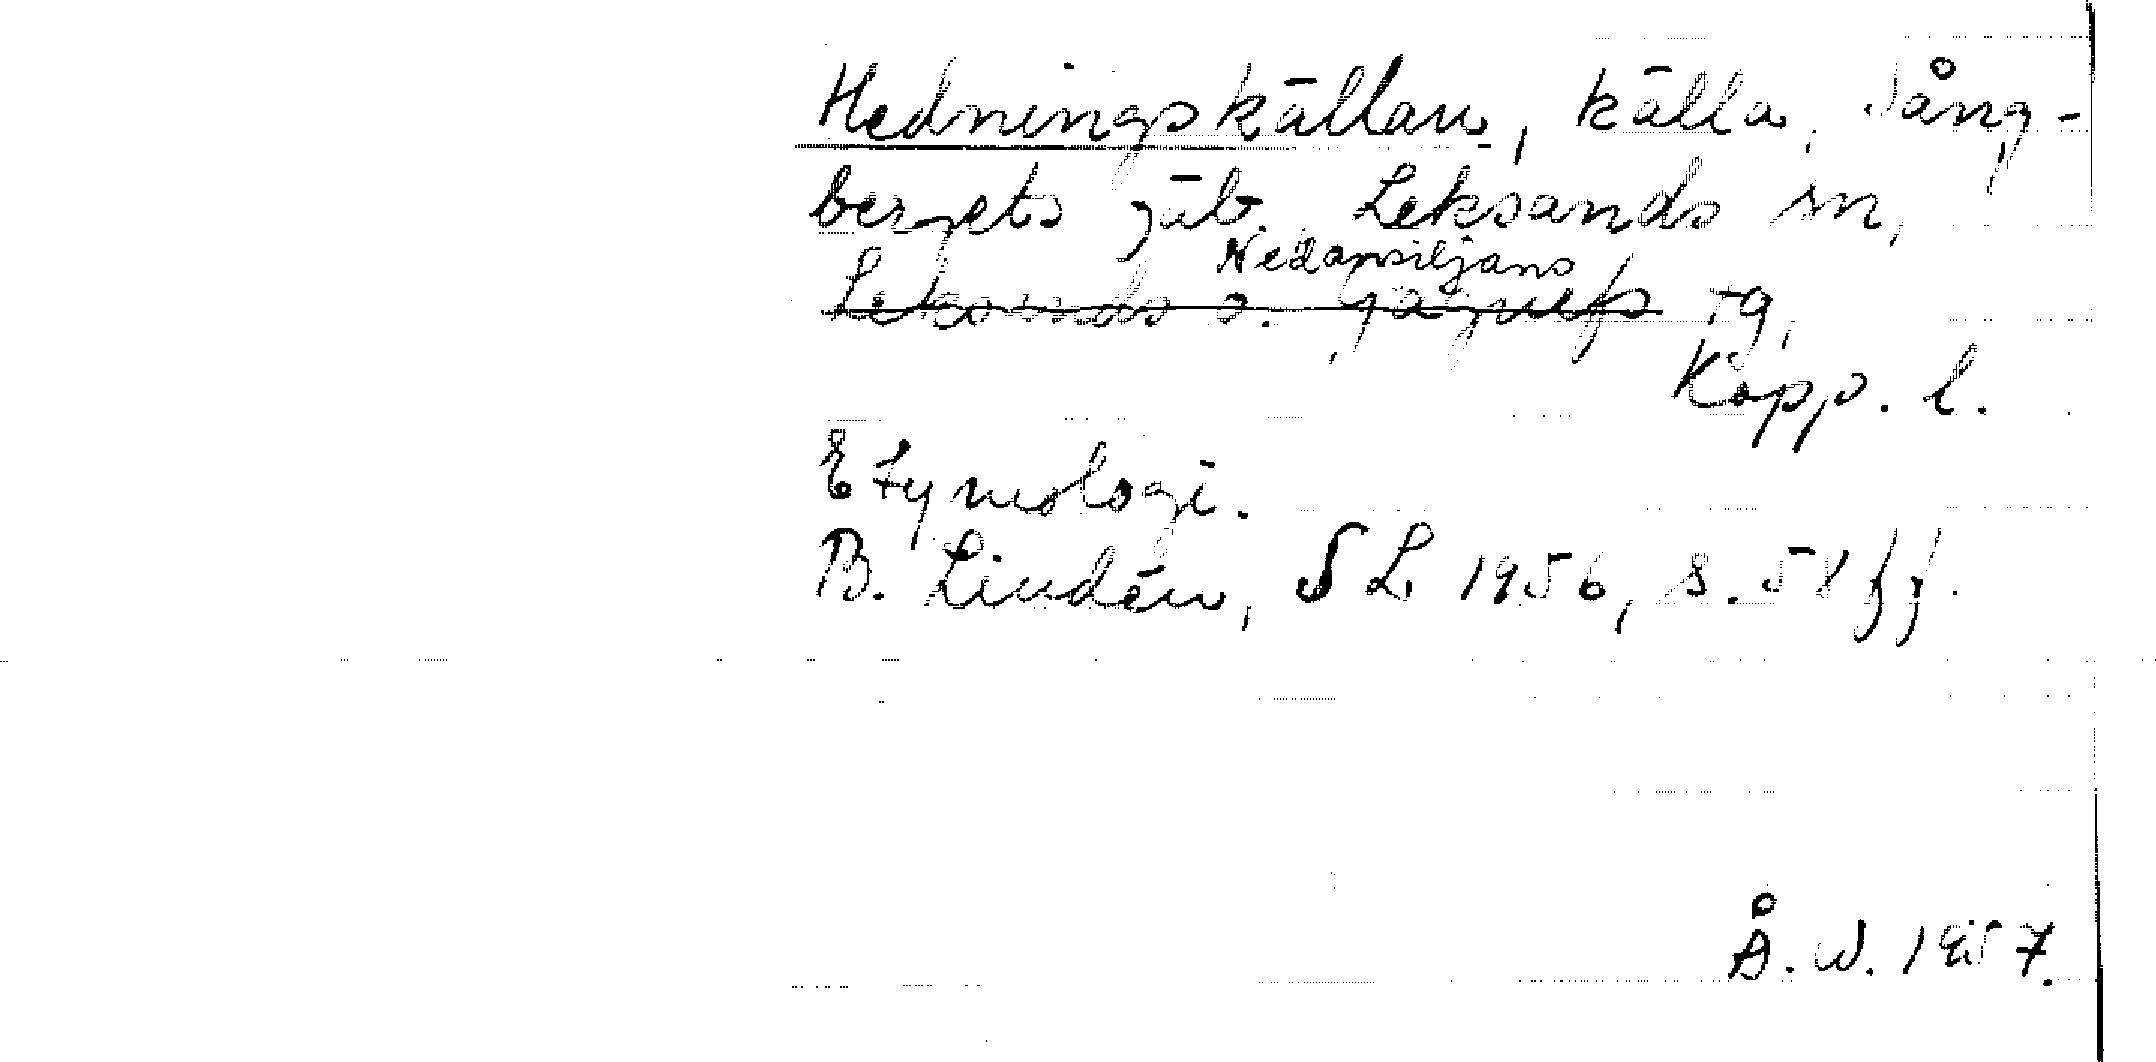 Hedningskällan, källa, Tång-
bergets fäb. Leksands sn,
Nedansiljans
Leksands o. Gagnefs tg,
Kopp. l.
Etymologi.
B. Lindén, SL 1956, s. 58 ff.
Å. W. 1957.